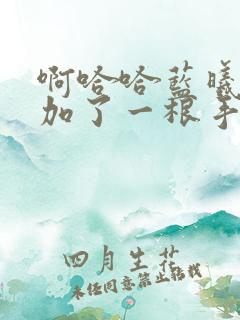 啊哈哈蓝曦
加了一根手
四月生花
未经同意禁止转载